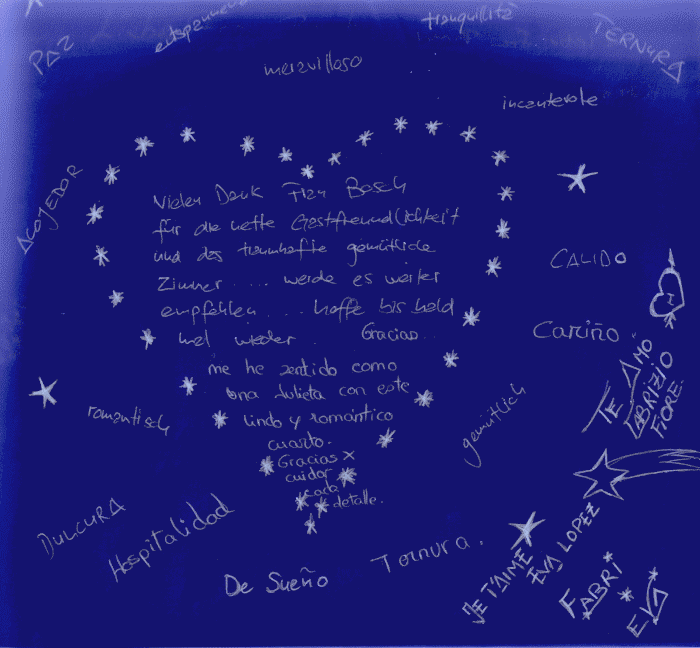 PAZ
entspannend
tranquillitä
TERNURA
meravilloso
incanterole
ACOJEDOR
Vielen Dank Frau Bosch
für die nette Gastfreundlichkeit
und das traumhafte gemütliche
Zimmer .... werde es weiter
empfehlen ... hoffe bis bald
mal wieder. Gracias..
me he sentido como
una Julieta con este
lindo y romántico
cuarto.
Gracias x
cuidar
cada
detalle.
CALIDO
Cariño
TE AMO
FABRIZIO
FIORE.
romantisch
gemütlich
DULCURA
Hospitalidad
De Sueño
Ternura.
JE T'AIME
EVA LOPEZ
FABRI
EVA